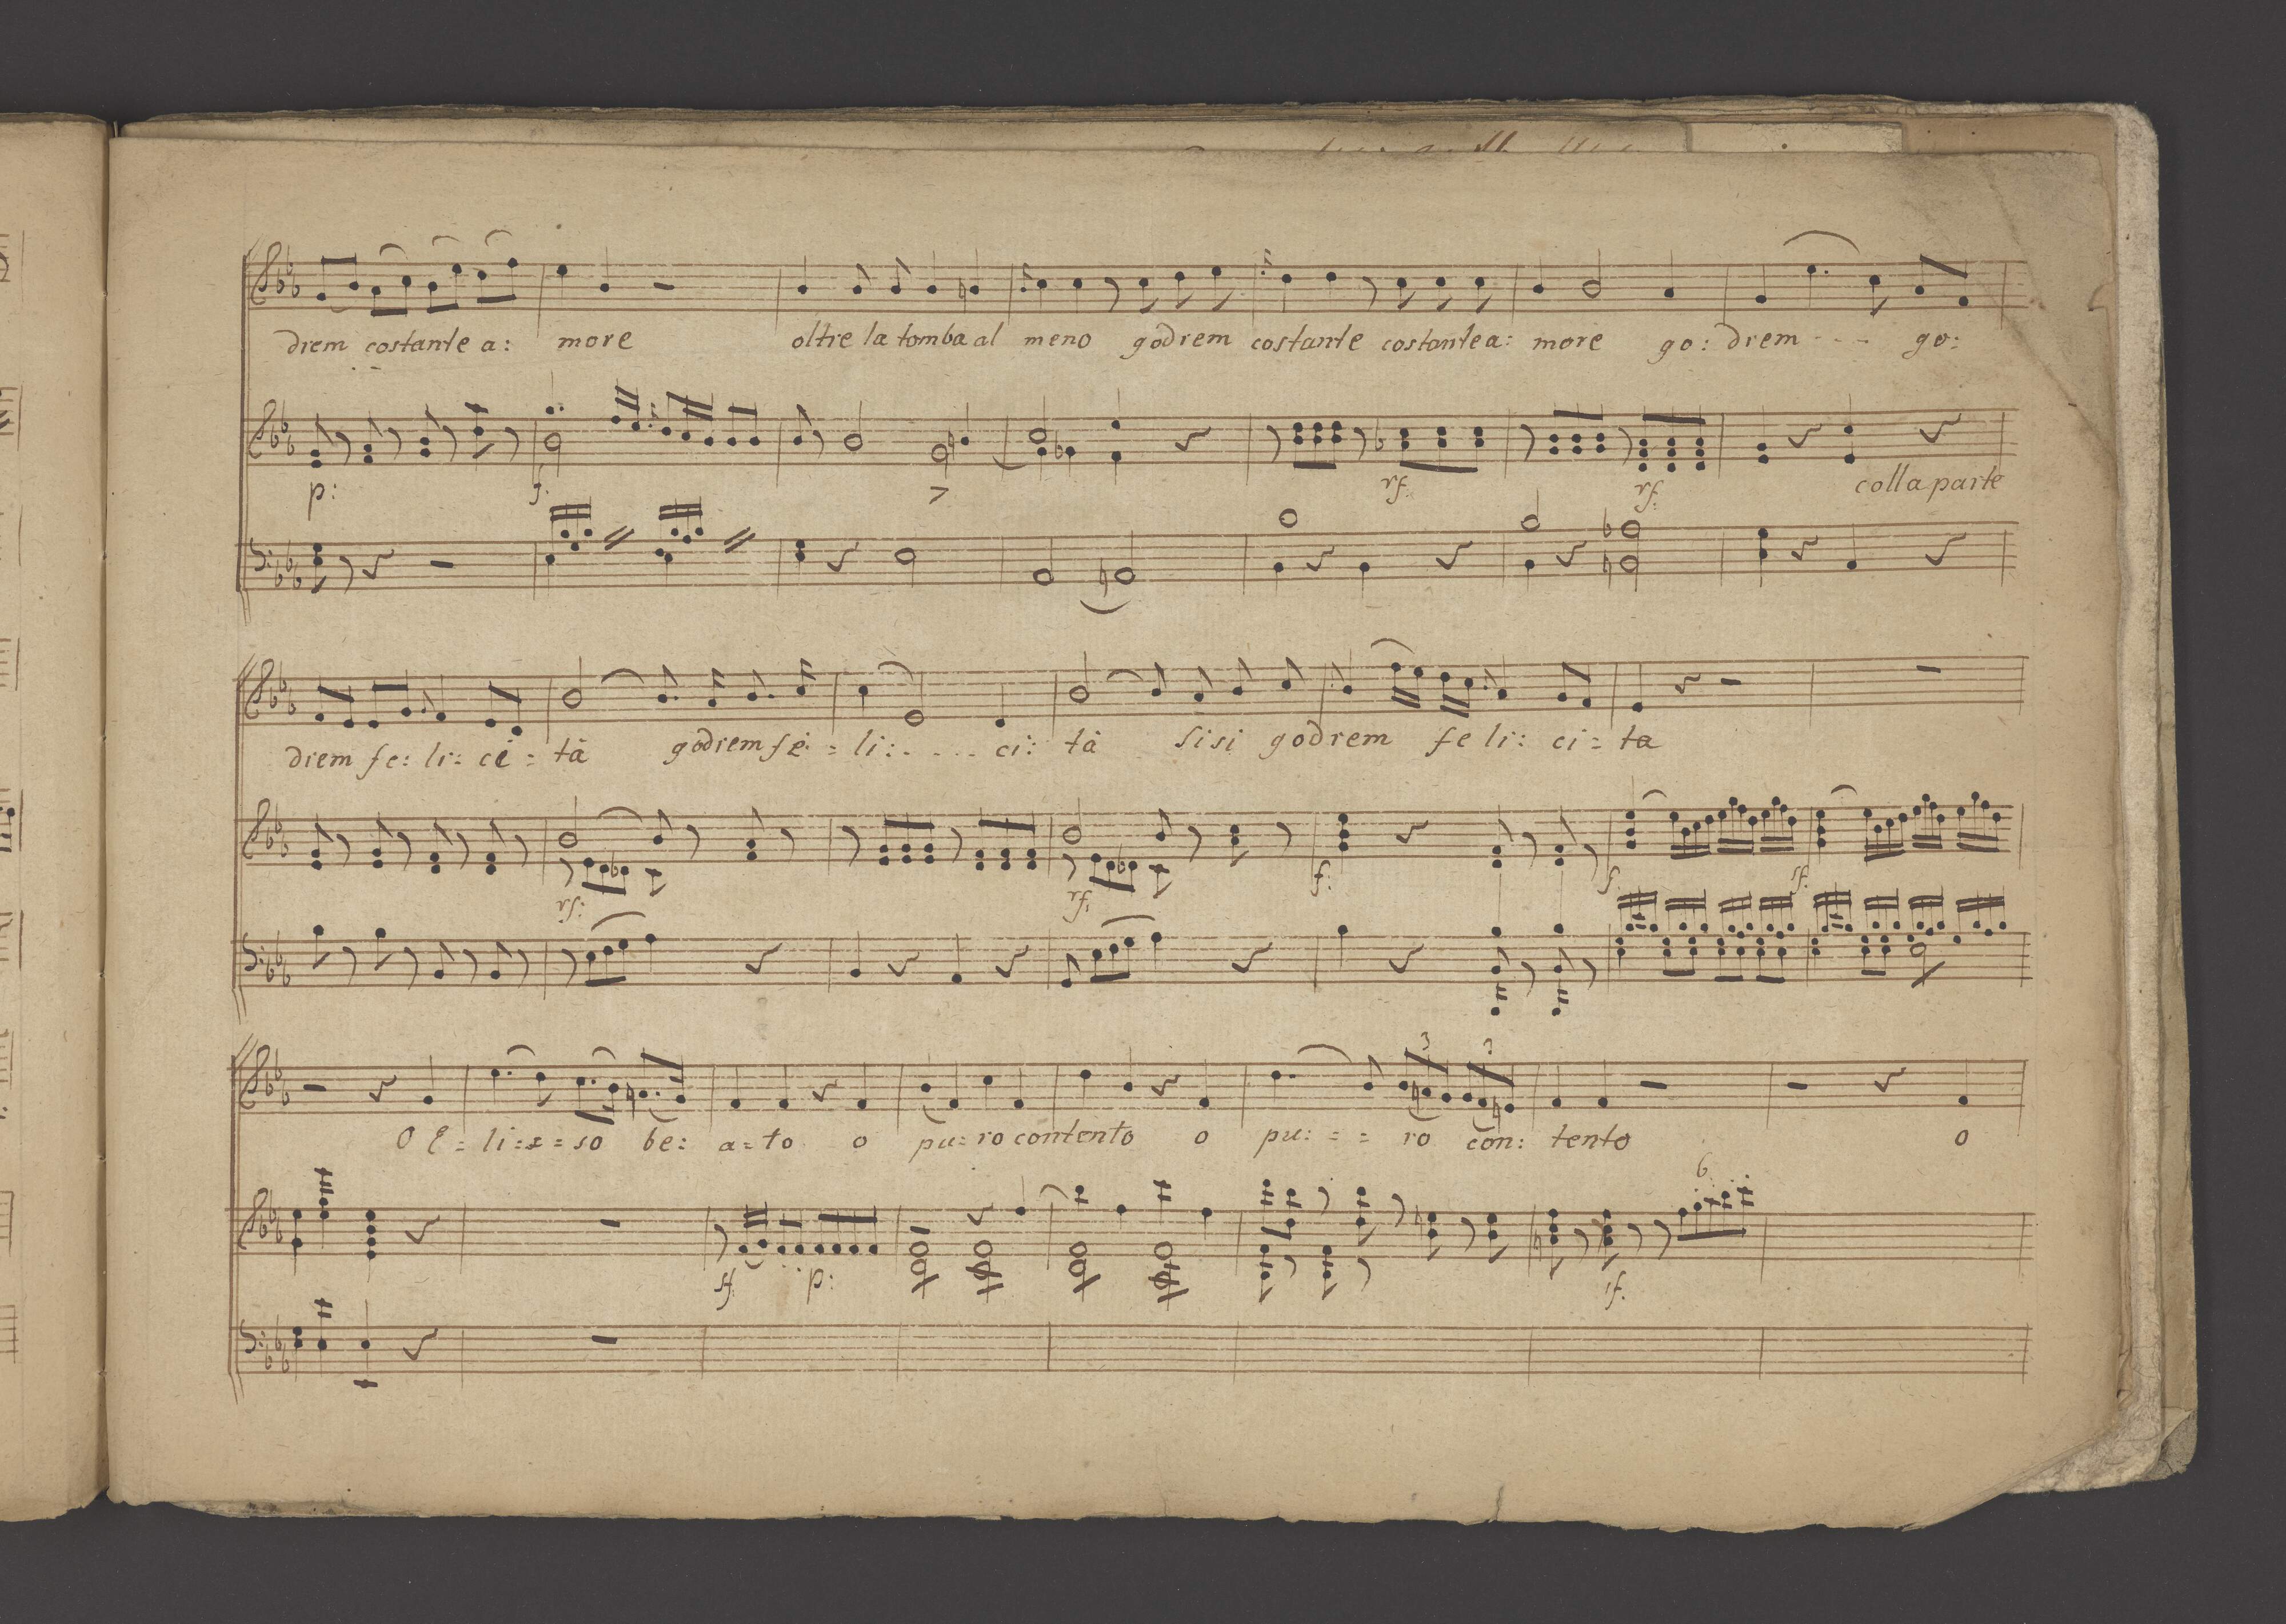 drem costante a: more oltre la tomba al meno godrem costante costante a: more go: drem - - - go:
p: f. > rf: rf: colla parte
drem fe: li: ci = tà godrem fe: = li: - - - - ci: tà si si godrem fe li: ci = ta
rf: rf: f: f sf:
3 3
O E = li: = = so be: a = to o pu: ro contento o pu: = = ro con: tento o
6
sf. p: rf: